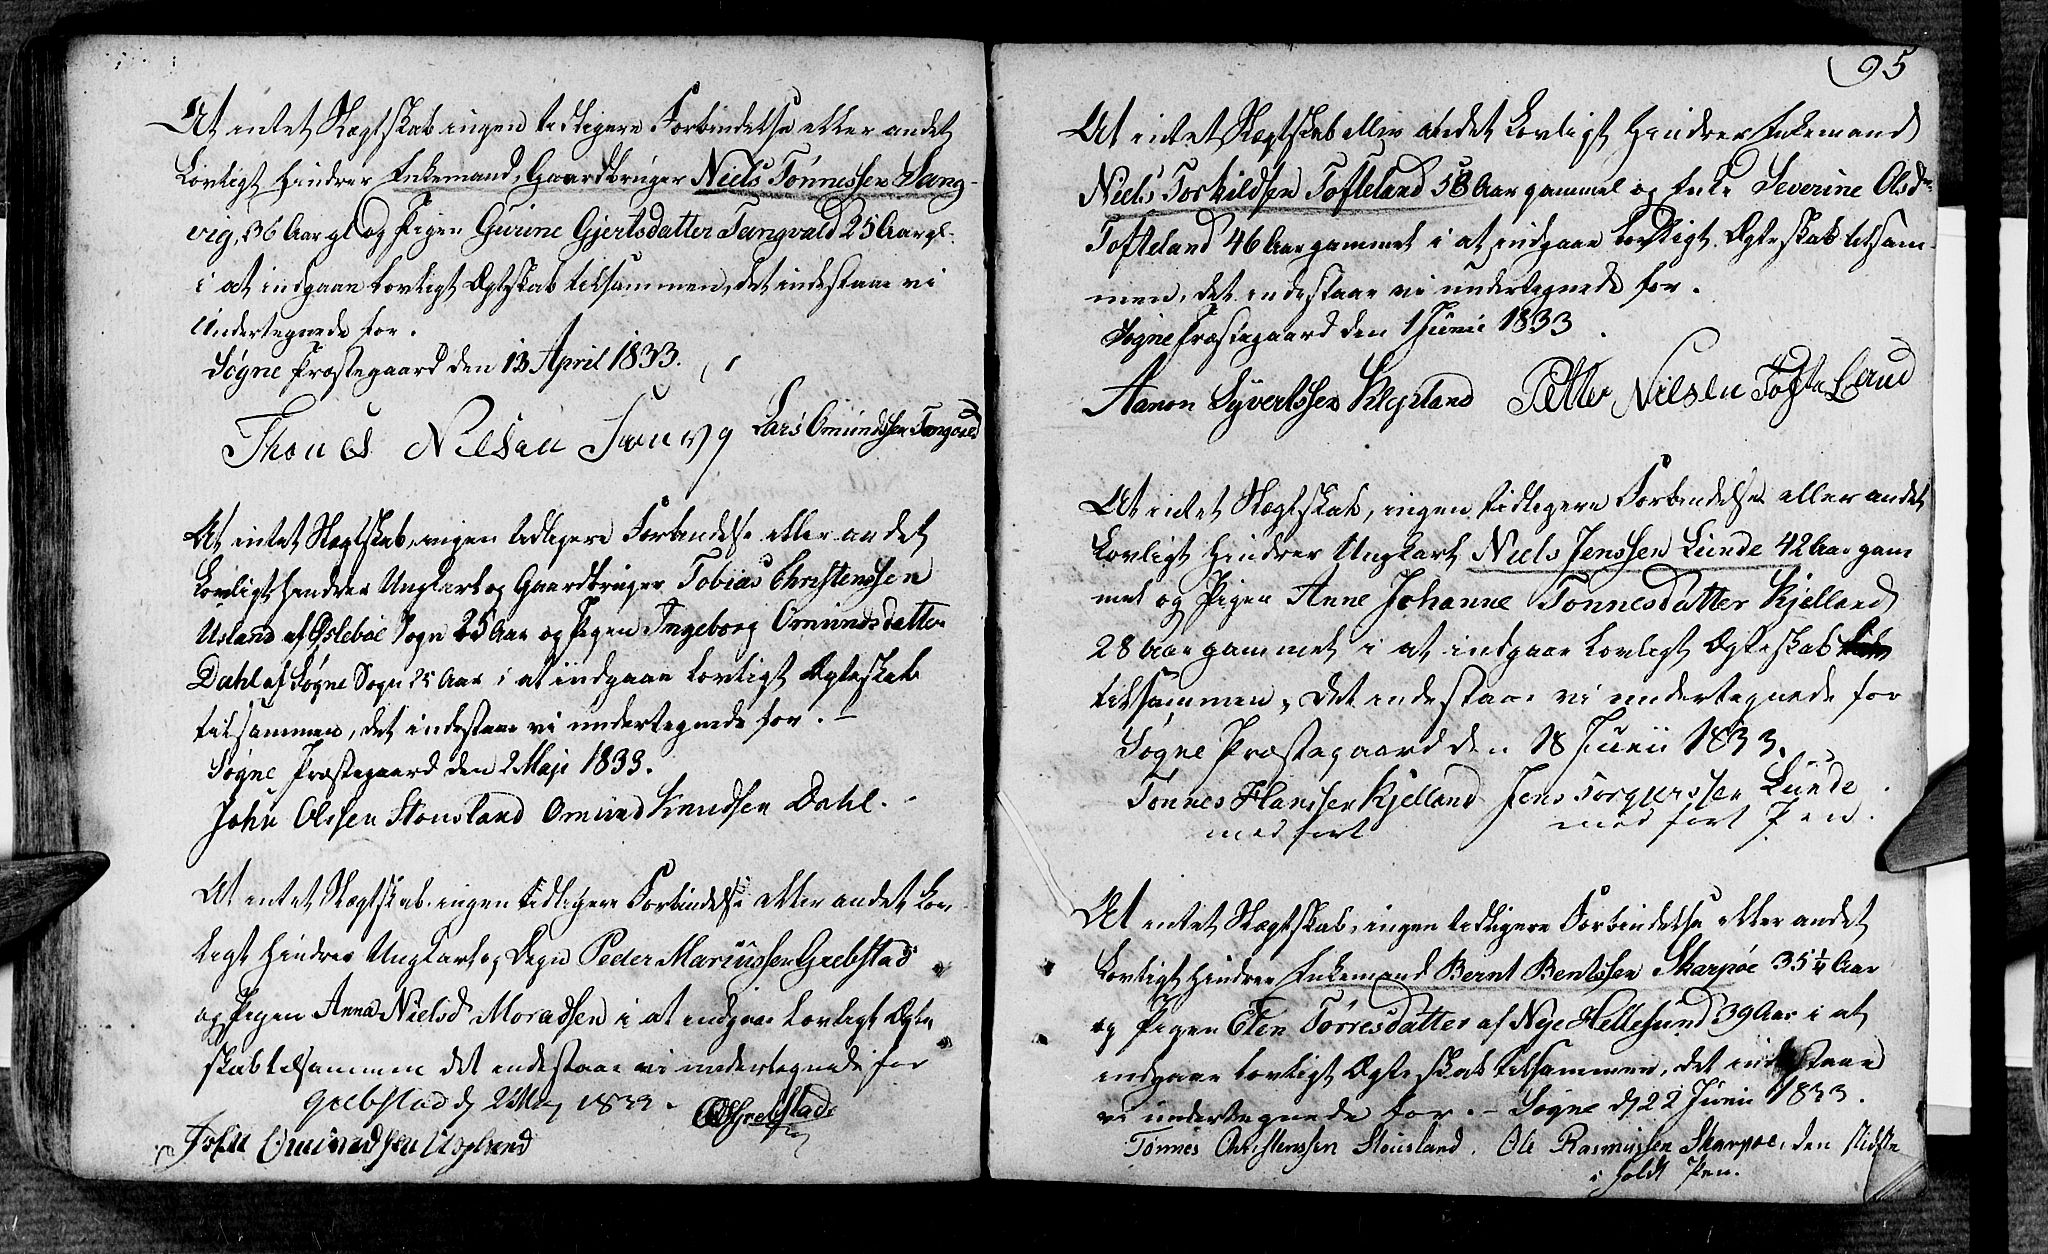 At intet Slægtskab ingen tidligere Forbindelse eller andet
Lovligt hindrer Enkemand, Gaardbruger Niels Tønnessen Sang-
vig, 36 Aar gl og Pigen Gurine Gjertsdatter Tangvald 25 Aar gl.
i at indgaae lovligt Ægtskab tilsammen, det indestaae vi
Undertegnede for.
Søgne Præstegaard den 13 April 1833.
Thones Nilsen Lars Omundssen Tangvald
At intet Slægtskab, ingen tidligere Forbindelse eller andet
Lovligt hindrer Ungkarl og Gaardbruger Tobias Christenssen
Usland af Øslebøe Sogn 25 Aar og Pigen Ingeborg Omundsdatter
Dahl af Søgne Sogn 25 Aar i at indgaae lovligt Ægteskab
tilsammen, det indestaae vi undertegnede for. –
Søgne Præstegaard den 2 Maji 1833.
John Olssen Stousland Omund Knudsen Dahl.
At intet Slægtskab ingen tidligere Forbindelse eller andet Lov-
ligt hindrer Ungkarl og Degn Peder Mariussen Grebstad
og Pigen Anna Nielsd Moradsen i at indgaae lovligt Ægte
skab tilsammen det indestaae vi undertegnede for
Grebstad d 2 May 1833.
Omundsen
95
At intet Slægtskab eller andet Lovligt hindrer Enkemand
Niels Torkildsen Tofteland 58 Aar gammel og Enke Severine Olsd
Tofteland 46 Aar gammel i at indgaae lovligt Ægteskab tilsam-
men, det indestaae vi undertegnede for.
Søgne Præstegaard den 1 Junii 1833.
Aanon Syvertssen Klepland Petter Nilsen Tofteland
At intet Slægtskab, ingen tidligere Forbindelse eller andet
Lovligt hindrer Ungkarl Niels Jenssen Lunde 42 Aar gam
mel og Pigen Anne Johanne Tønnesdatter Kjelland
28 Aar gammel i at indgaae Lovligt Ægteskab
tilsammen, det indestaae vi undertegnede for
Søgne Præstegaard den 18 Junii 1833.
Tønnes Hanssen Kjelland Jens Torgerssen Lunde
med ført med ført Pen.
At intet Slægtskab, ingen tidligere Forbindelse eller andet
Lovligt hindrer Enkemand Bernt Bentssen Skarpøe 35 1/4 Aar
og Pigen Elen Tørresdatter af Nye Hellesund 39 Aar i at
indgaae lovligt Ægteskab tilsammen, det indestaae
vi undertegnede for. – Søgne d 22 Junii 1833.
Tønnes Christenssen Stousland. Ole Rasmussen Skarpøe, den sidste
i holdt Pen.